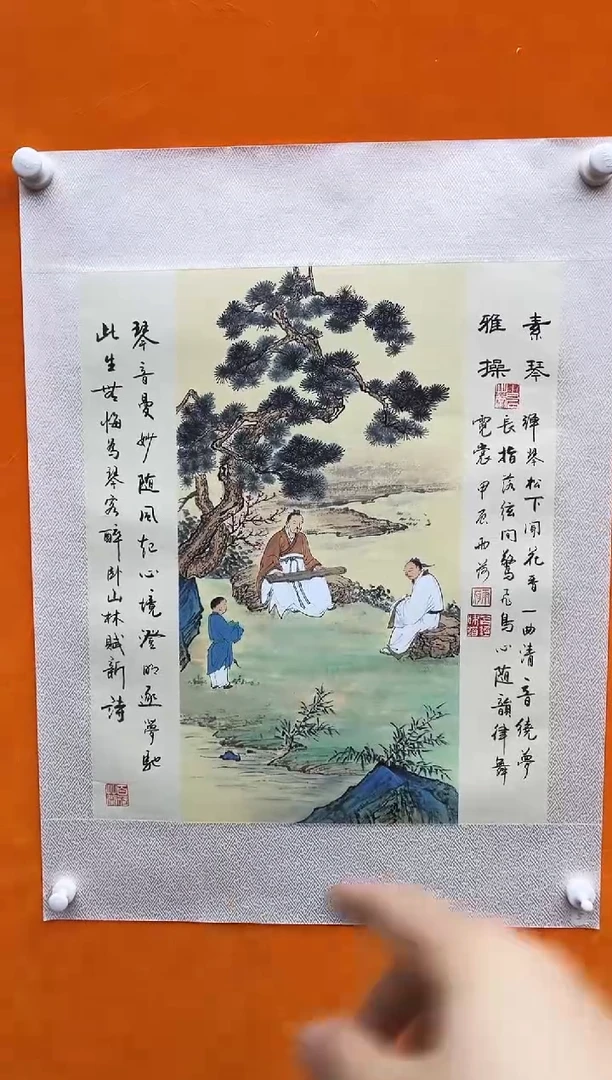 素琴
雅操
弹琴松下闻花香一曲清音绕梦
长指落弦间惊飞鸟心随韵律舞
霓裳 甲辰 雨荷
琴音曼妙随风起心境澄明逐梦驰
此生無悔为琴客醉卧山林赋新诗